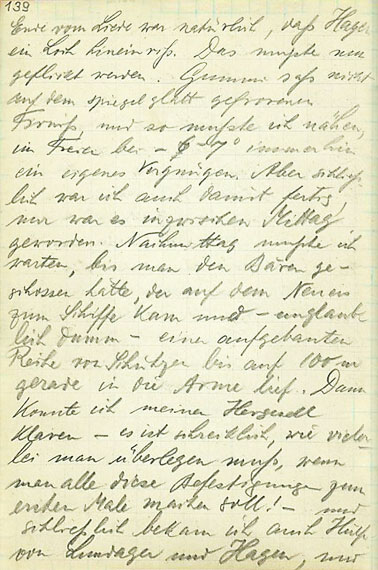 139
Ende vom Liede war natürlich, daß Hagen
ein Loch hineinriß. Das mußte nun
geflickt werden. Gummi saß nicht
auf dem spiegelglatt gefrorenen
Firniß, und so mußte ich nähen,
im Freien bei – 6–7° immerhin
ein eigenes Vergnügen. Aber schließ-
lich war ich auch damit fertig,
nur war es inzwischen Mittag
geworden. Nachmittag mußte ich
warten, bis man den Bären ge-
schossen hatte, der auf dem Neueis
zum Schiffe kam und – unglaub-
lich dumm – einer aufgebauten
Reihe von Schützen bis auf 100 m
gerade in die Arme lief. Dann
konnte ich meinen
klaren – es ist schrecklich, wie vieler-
lei man überlegen muß, wenn
man alle diese Befestigungen zum
ersten Male machen soll! – und
schließlich bekam ich auch Hülfe
von Lundager und Hagen, und